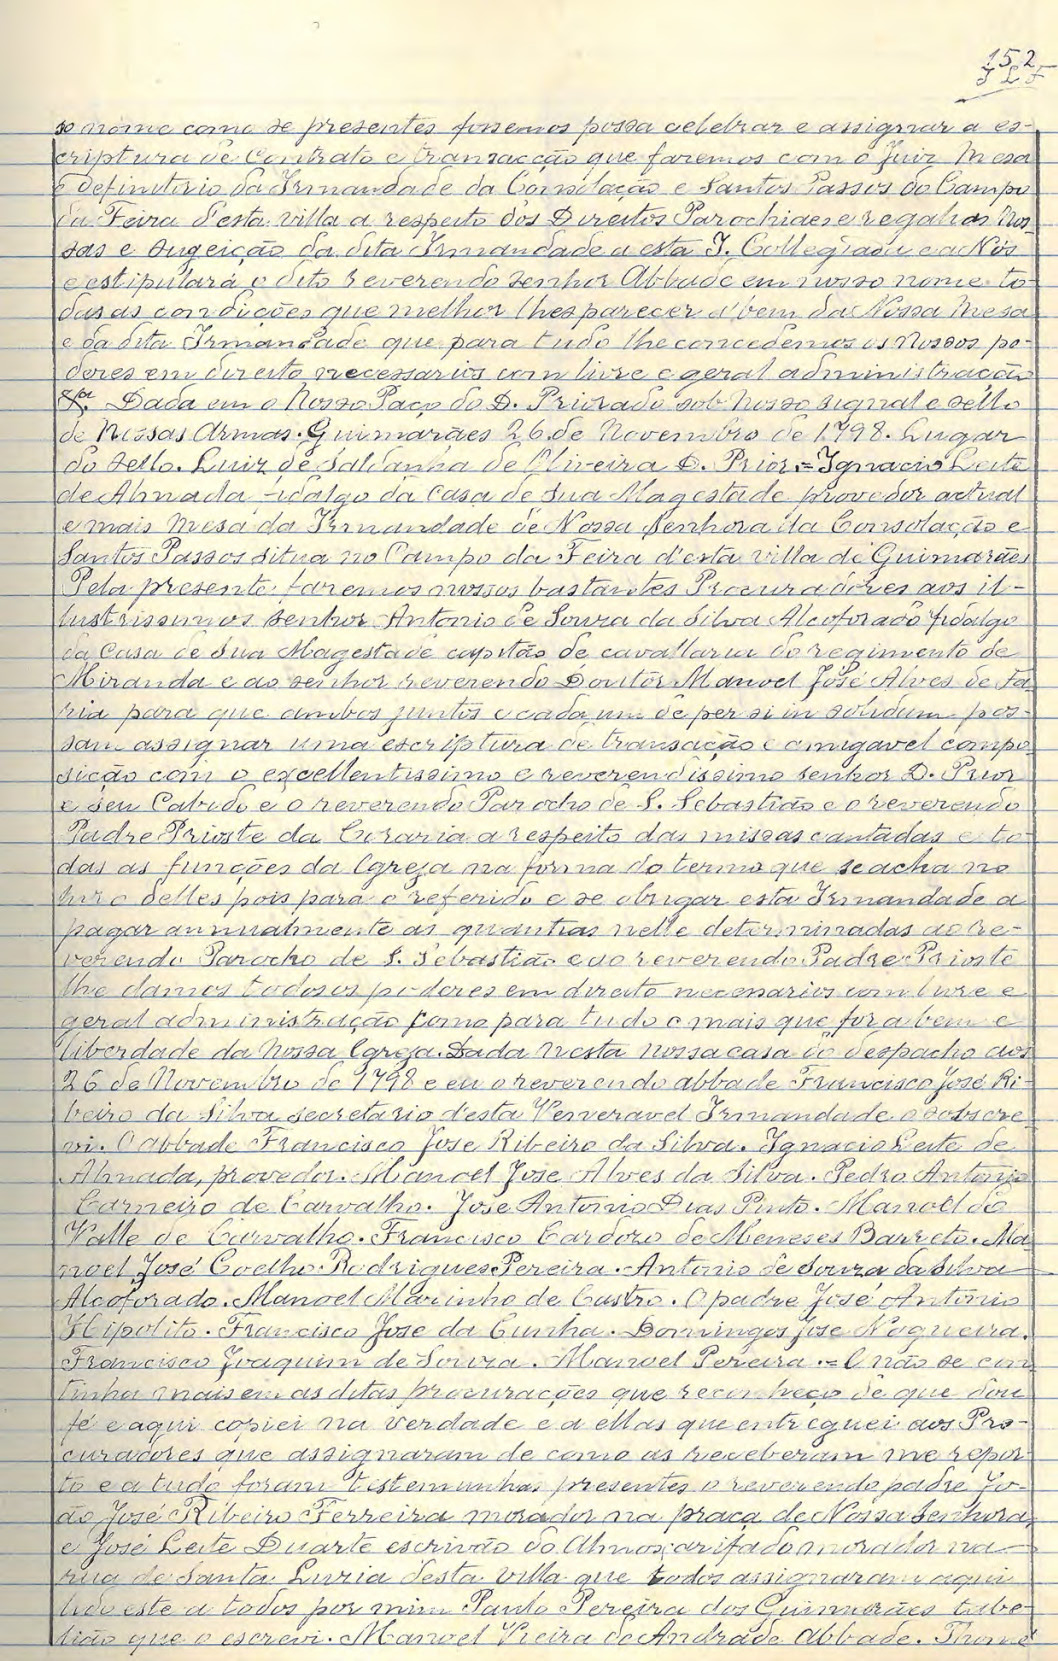 152
J L F
so nome como se presentes fossemos possa celebrar e assignar a es-
criptura de Contrato e transacção que faremos com o Juiz Mesa
e definitorio da Irmandade da Consolação e Santos Passos do Campo
da Feira d'esta villa a respeito dos Direitos Parochiaes e regalias Nos-
sas e sugeição da dita Irmandade a esta I. Collegiada e a Nós
e estipulará o dito reverendo senhor Abbade em nosso nome to-
das as condições que melhor lhes parecer a bem da Nossa Mesa
e da dita Irmandade que para tudo lhe concedemos os Nossos po-
deres em direito necessarios com livre e geral administração
&.ª Dada em o Nosso Paço do D. Priorado sob Nosso signal e sello
de Nossas Armas. Guimarães 26 de Novembro de 1798. Lugar
do sello. Luiz de Saldanha de Oliveira D. Prior = Ignacio Leite
de Almada fidalgo da Casa de Sua Magestade provedor actual
e mais Mesa da Irmandade de Nossa Senhora da Consolação e
Santos Passos situa no Campo da Feira d'esta villa de Guimarães
Pela presente fazemos nossos bastantes Procuradores aos il-
lustrissimos senhor Antonio de Souza da Silva Alcoforado fidalgo
da Casa de Sua Magestade capitão de cavallaria do regimento de
Miranda e ao senhor reverendo Doutor Manoel José Alves de Fa-
ria para que ambos juntos e cada um de per si in solidum pos-
sam assignar uma escriptura de transação e amigavel compo-
sição com o excellentissimo e reverendissimo senhor D. Prior
e seu Cabido e o reverendo Parocho de S. Sebastião e o reverendo
Padre Prioste da Coraria a respeito das missas cantadas e to-
das as funções da Egreja na forma do termo que se acha no
livro delles pois para o referido e se obrigar esta Irmandade a
pagar annualmente as quantias nelle determinadas ao re-
verendo Parocho de S. Sebastião e ao reverendo Padre Prioste
lhe damos todos os poderes em direito necessarios com livre e
geral administração como para tudo o mais que for a bem e
liberdade da Nossa Egreja. Dada nesta nossa casa do despacho aos
26 de Novembro de 1798 e eu o reverendo abbade Francisco José Ri-
beiro da Silva secretario d'esta Venveravel Irmandade o sobscre-
vi. O abbade Francisco Jose Ribeiro da Silva. Ignacio Leite de
Almada, provedor. Manoel Jose Alves da Silva. Pedro Antonio
Carneiro de Carvalho. Jose Antonio Dias Pinto. Manoel do
Valle de Carvalho. Francisco Cardozo de Meneses Barreto. Ma-
noel José Coelho. Rodrigues Pereira. Antonio de Souza da Silva
Alcoforado. Manoel Marinho de Castro. O padre José Antonio
Hipolito. Francisco Jose da Cunha. Domingos Jose Nogueira.
Francisco Joaquim de Souza. Manoel Pereira. = E não se con-
tinha mais em as ditas procurações que reconheço de que dou
fé e aqui copiei na verdade e a ellas que entreguei aos Pro-
curadores que assignaram de como as receberam me repor-
to e a tudo foram testemunhas presentes o reverendo padre Jo-
ão José Ribeiro Ferreira morador na praça de Nossa Senhora,
e José Leite Duarte escrivão do Almoxarifado morador na
rua de Santa Luzia desta villa que todos assignaram aqui
lido este a todos por mim Paulo Pereira dos Guimarães tabe-
lião que o escrevi. Manoel Vieira de Andrade Abbade. Thomé